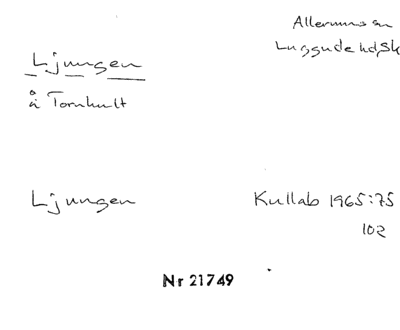 Allerums sn
Luggude hd, Sk
Ljungen
å Tornhult
Ljungen
Kullab 1965:75
102
Nr 21749